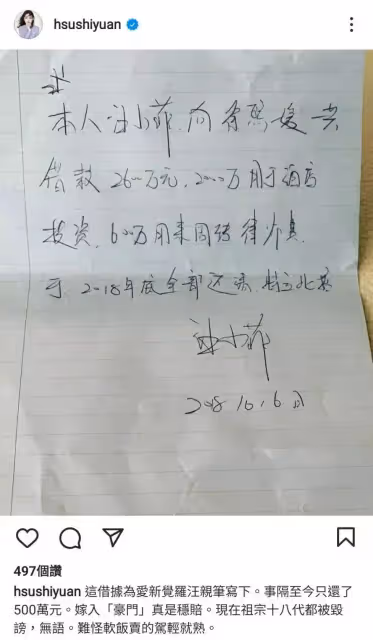 hsushiyuan
本人汪小菲.向徐熙媛共
借款2600万元.2000万用于酒店
投资.600万用来周转律师费.
于2018年底全部还清.特立此据
汪小菲
2018.10.6日
497個讚
hsushiyuan 這借據為愛新覺羅汪親筆寫下。事隔至今只還了
500萬元。嫁入「豪門」真是穩賠。現在祖宗十八代都被毀
謗,無語。難怪軟飯賣的駕輕就熟。